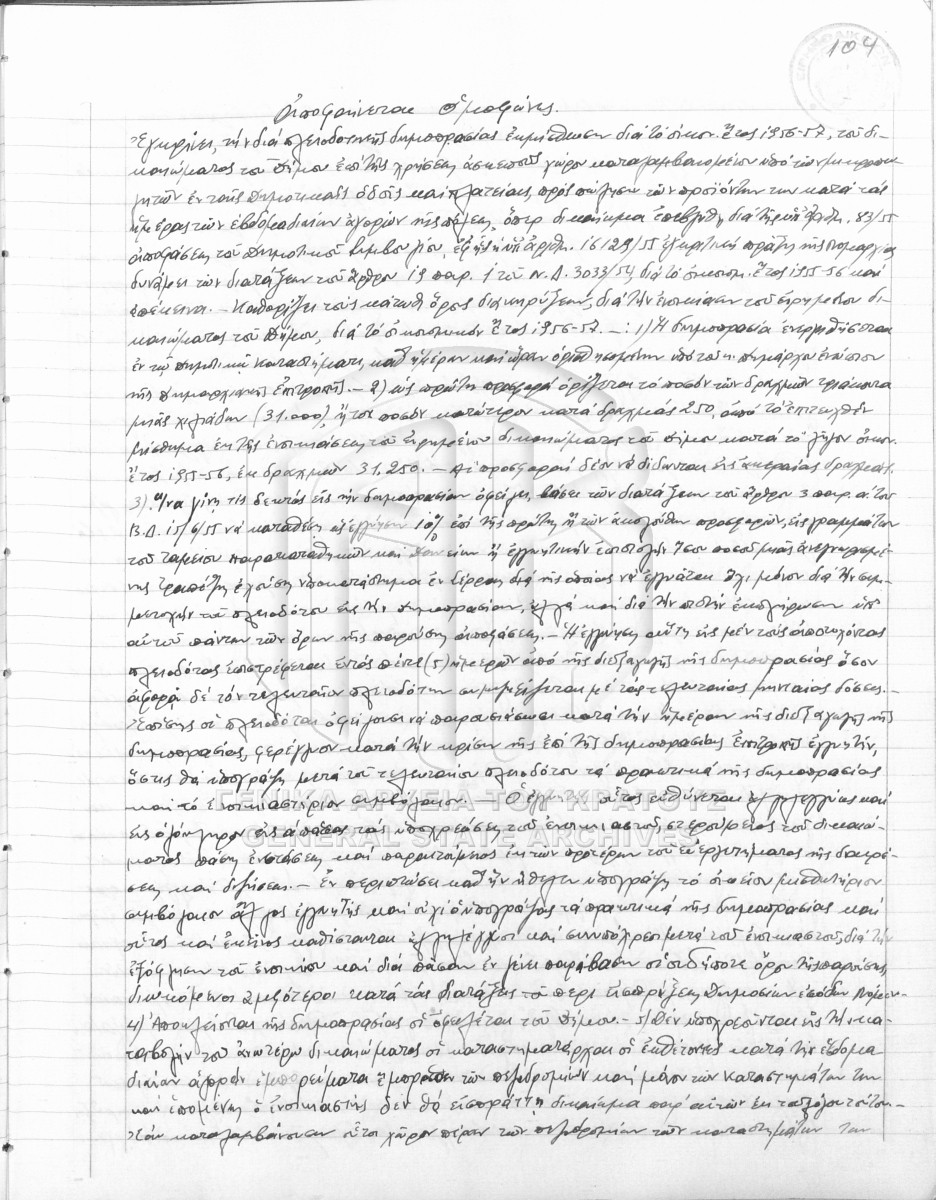 104
Ἀποφαίνεται ὁμοφώνως.
Ἐγκρίνει, τὴν διὰ πλειοδοτικῆς δημοπρασίας ἐκμίσθωσιν διὰ τὸ οἰκον. ἔτος 1956-57, τοῦ δι-
καιώματος τοῦ Δήμου ἐπὶ τῆς χρήσεως ἀσκεποῦς χώρου καταλαμβανομένου ὑπὸ τῶν μικροπω
λητῶν ἐν ταῖς δημοτικαῖς ὁδοῖς καὶ πλατείαις, πρὸς πώλησιν τῶν προϊόντων των κατὰ τὰς
ἡμέρας τῶν ἑβδομαδιαίων ἀγορῶν τῆς πόλεως, ὅπερ δικαίωμα ἐπεβλήθη διὰ τῆς ὑπ' ἀριθμ. 83/55
ἀποφάσεως τοῦ Δημοτικοῦ Συμβουλίου, ἐφ' ἧς ἡ ὑπ' ἀριθμ. 16129/55 ἐγκριτικὴ πρᾶξις τῆς Νομαρχίας
δυνάμει τῶν διατάξεων τοῦ ἄρθρου 19 παρ. 1 τοῦ Ν.Δ. 3033/54, διὰ τὸ οἰκονομ. ἔτος 1955-56 καὶ
ἐπέκεινα. - Καθορίζει τοὺς κάτωθι ὅρους διακηρύξεως, διὰ τὴν ἐνοικίασιν τοῦ εἰρημένου δι-
καιώματος τοῦ Δήμου, διὰ τὸ οἰκονομικὸν ἔτος 1956-57. - : 1) Ἡ δημοπρασία ἐνεργηθήσεται
ἐν τῷ Δημοτικῷ Καταστήματι, καθ' ἡμέραν καὶ ὥραν ὁρισθησομένην ὑπὸ τοῦ κ. Δημάρχου ἐνώπιον
τῆς Δημαρχιακῆς Ἐπιτροπῆς. - 2) ὡς πρώτη προσφορὰ ὁρίζεται τὸ ποσὸν τῶν δραχμῶν τριάκοντα
μιᾶς χιλιάδων (31.000), ἤτοι ποσὸν κατώτερον κατὰ δραχμὰς 250, ἀπὸ τὸ ἐπιτευχθὲν
μίσθωμα ἐκ τῆς ἐνοικιάσεως τοῦ εἰρημένου δικαιώματος τοῦ Δήμου κατὰ τὸ λῆγον οἰκον.
ἔτος 1955-56, ἐκ δραχμῶν 31.250. - Αἱ προσφοραὶ δέον νὰ δίδωνται εἰς ἀκεραίας δραχμάς.
3) Ἵνα γίνῃ τις δεκτὸς εἰς τὴν δημοπρασίαν ὀφείλει, βάσει τῶν διατάξεων τοῦ ἄρθρου 3 παρ. α τοῦ
Β.Δ. 15/6/55 νὰ καταθέσῃ ὡς ἐγγύησιν 10% ἐπὶ τῆς πρώτης ἢ τῶν ἀκολούθων προσφορῶν, εἰς γραμμάτιον
τοῦ Ταμείου Παρακαταθηκῶν καὶ Δανείων ἢ ἐγγυητικὴν ἐπιστολὴν ἴσου ποσοῦ μιᾶς ἀνεγνωρισμέ-
νης τραπέζης ἐχούσης ὑποκατάστημα ἐν Σέρραις διὰ τῆς ὁποίας νὰ ἐγγυᾶται ὄχι μόνον διὰ τὴν συμ-
μετοχὴν τοῦ πλειοδότου εἰς τὴν δημοπρασίαν, ἀλλὰ καὶ διὰ τὴν πιστὴν ἐκπλήρωσιν ὑπ'
αὐτοῦ πάντων τῶν ὅρων τῆς παρούσης ἀποφάσεως. - Ἡ ἐγγύησις αὕτη εἰς μὲν τοὺς ἀποτυχόντας
πλειοδότας ἐπιστρέφεται ἐντὸς πέντε (5) ἡμερῶν ἀπὸ τῆς διεξαγωγῆς τῆς δημοπρασίας ὅσον
ἀφορᾷ δὲ τὸν τελευταῖον πλειοδότην συμψηφίζεται μὲ τὰς τελευταίας μηνιαίας δόσεις. -
Ἐπίσης οἱ πλειοδόται ὀφείλουσι νὰ παρουσιάσωσι κατὰ τὴν ἡμέραν τῆς διεξαγωγῆς τῆς
δημοπρασίας, φερέγγυον κατὰ τὴν κρίσιν τῆς ἐπὶ τῆς δημοπρασίας Ἐπιτροπῆς ἐγγυητήν,
ὅστις θὰ ὑπογράψῃ μετὰ τοῦ τελευταίου πλειοδότου τὰ πρακτικὰ τῆς δημοπρασίας
καὶ τὸ ἐνοικιαστήριον συμβόλαιον. - Ὁ ἐγγυητὴς οὗτος εὐθύνεται ἀλληλεγγύως καὶ
εἰς ὁλόκληρον εἰς ἁπάσας τὰς ὑποχρεώσεις τοῦ ἐνοικιαστοῦ, στερούμενος τοῦ δικαιώ-
ματος πάσης ἐνστάσεως καὶ παραιτούμενος ἐκ τῶν προτέρων τοῦ εὐεργετήματος τῆς διαιρέ-
σεως καὶ διζήσεως. - Ἐν περιπτώσει καθ' ἣν ἤθελεν ὑπογράψῃ τὸ οἰκεῖον μισθωτήριον
συμβόλαιον ἄλλος ἐγγυητὴς καὶ οὐχὶ ὁ ὑπογράψας τὰ πρακτικὰ τῆς δημοπρασίας καὶ
οὗτος καὶ ἐκεῖνος καθίστανται ἀλληλέγγυοι καὶ συνυπόχρεοι μετὰ τοῦ ἐνοικιαστοῦ, διὰ τὴν
ἐξόφλησιν τοῦ ἐνοικίου καὶ διὰ πᾶσαν ἐν γένει παράβασιν οἱουδήποτε ὅρου τῆς παρούσης,
διωκόμενοι ἀμφότεροι κατὰ τὰς διατάξεις τοῦ περὶ εἰσπράξεως Δημοσίων ἐσόδων Νόμου -
4) Ἀποκλείονται τῆς δημοπρασίας οἱ ὀφειλέται τοῦ Δήμου. - 5) Δὲν ὑποχρεοῦνται εἰς τὴν κα-
ταβολὴν τοῦ ἀνωτέρω δικαιώματος οἱ καταστηματάρχαι οἱ ἐκθέτοντες κατὰ τὴν ἑβδομα
διαίαν ἀγορὰν ἐμπορεύματα ἔμπροσθεν τῶν πεζοδρομίων καὶ μόνον τῶν καταστημάτων των
καὶ ἑπομένως ὁ ἐνοικιαστὴς δὲν θὰ εἰσπράττῃ δικαίωμα παρ' αὐτῶν ἐκ τοῦ λόγου τούτου -
Ἐὰν καταλαμβάνωσιν οὗτοι χῶρον πέραν τῶν πεζοδρομίων τῶν καταστημάτων των
ΓΕΝΙΚΑ ΑΡΧΕΙΑ ΤΟΥ ΚΡΑΤΟΥΣ
GENERAL STATE ARCHIVES